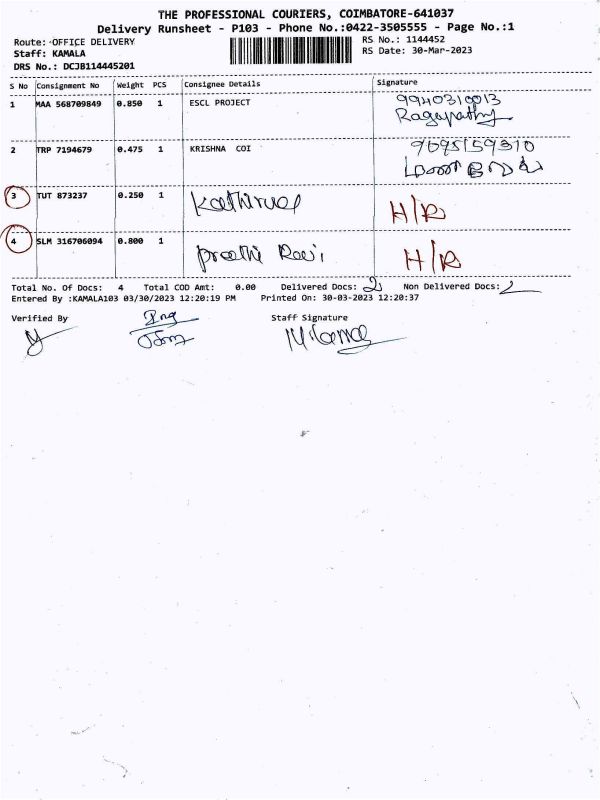 THE PROFESSIONAL COURIERS, COIMBATORE-641037
Delivery Runsheet - P103 - Phone No.:0422-3505555 - Page No.:1
Route: OFFICE DELIVERY
RS No.: 1144452
Staff: KAMALA
RS Date: 30-Mar-2023
DRS No.: DCJB114445201
S No Consignment No Weight PCS Consignee Details Signature
1 MAA 568709849 0.850 1 ESCL PROJECT 9940310013
Ragupathy
2 TRP 7194679 0.475 1 KRISHNA COI 9695159310
3 TUT 873237 0.250 1 Kathirvel H/R
4 SLM 316706094 0.800 1 Preethi Ravi H/R
Total No. Of Docs: 4 Total COD Amt: 0.00 Delivered Docs: 2 Non Delivered Docs:
Entered By :KAMALA103 03/30/2023 12:20:19 PM Printed On: 30-03-2023 12:20:37
Verified By Staff Signature